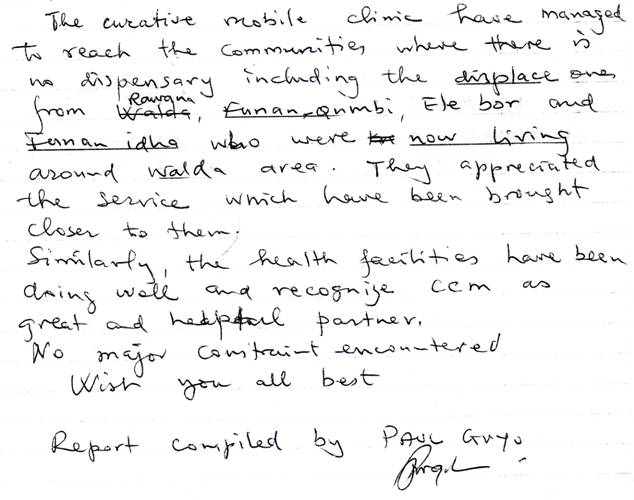 The curative mobile clinic have managed
to reach the communities where there is
no dispensary including the displace ones
from Rawana, Funan-qumbi, Ele bor and
Funan idha who were now living
around walda area. They appreciated
the service which have been brought
closer to them.
Similarly, the health facilities have been
doing well and recognize ccm as
great and helpful partner.
No major constraint encountered
Wish you all best
Report compiled by PAUL GUYO